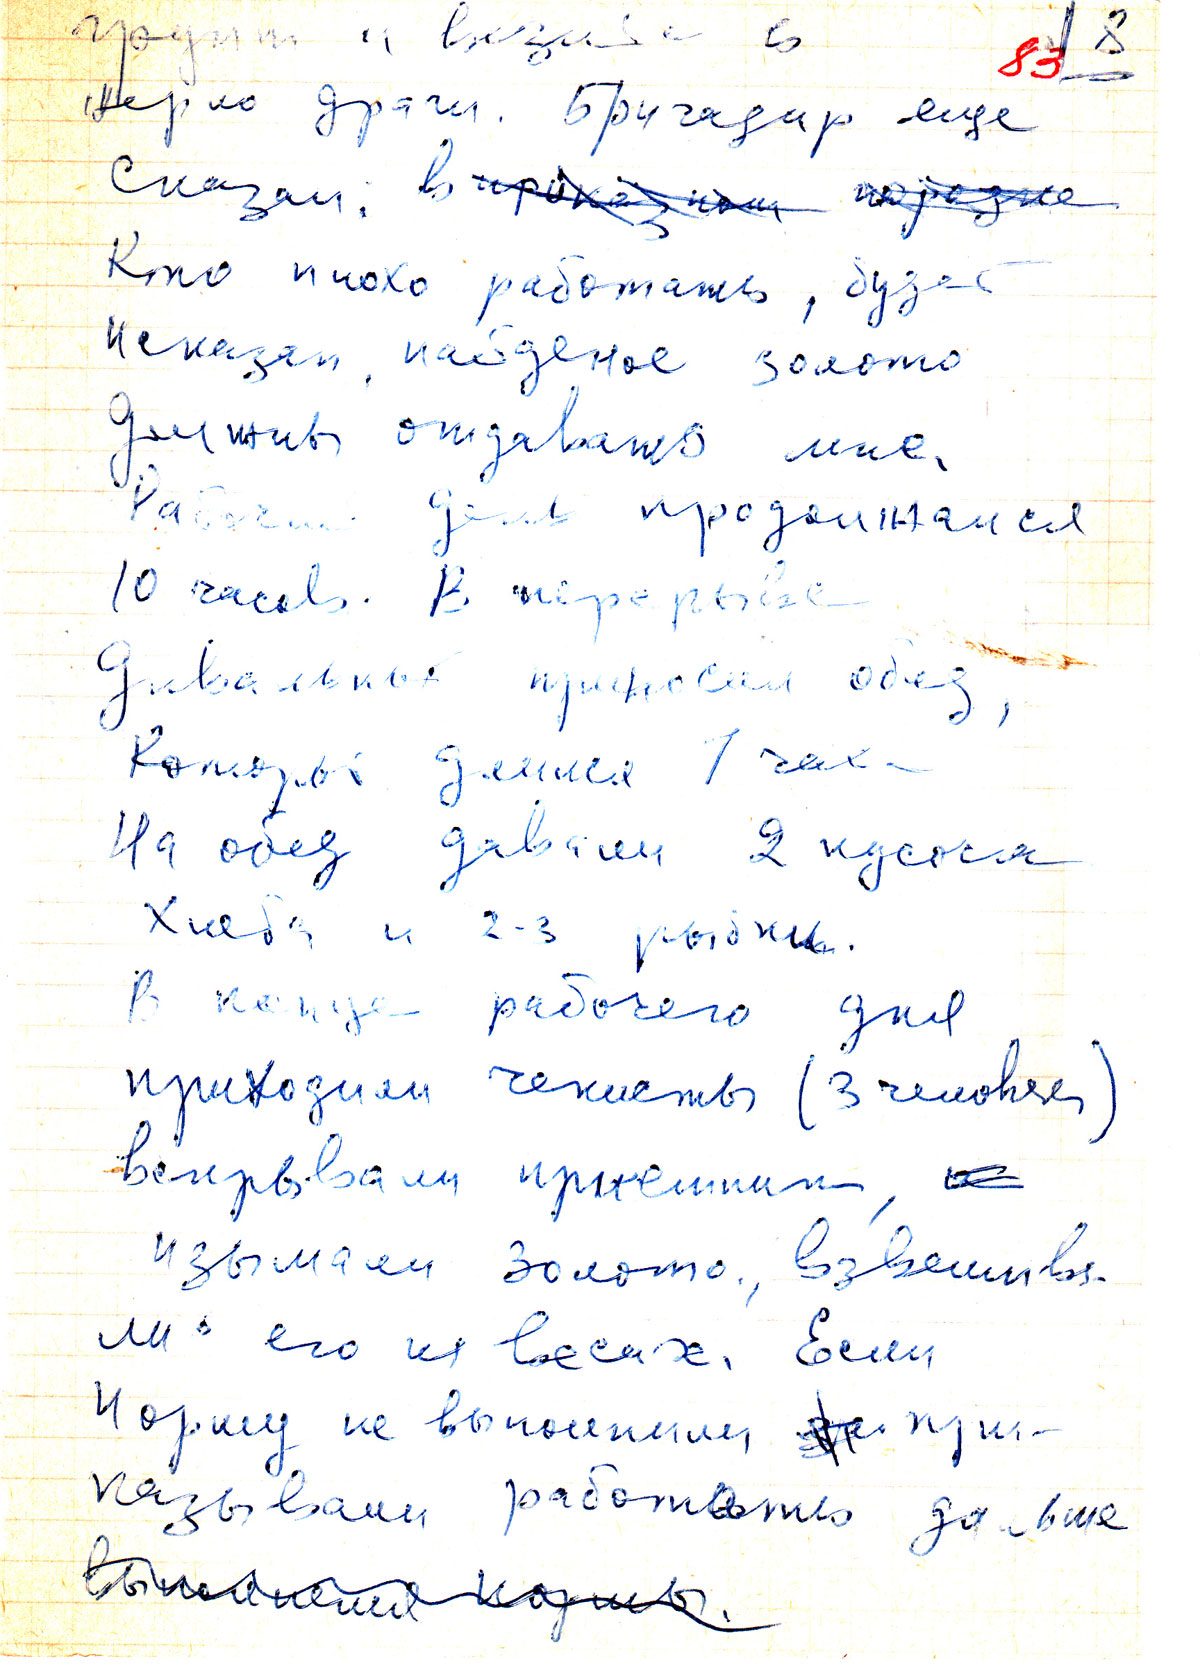 83 8
и в
жерло драги. Бригадир еще
сказал: в приказном порядке
Кто плохо работать, будет
наказан, найденое золото
должны отдавать мне.
Рабочий день продолжался
10 часов. В перерыве
Дневальный приносил обед,
Который длился 1 час
На обед давали 2 кусочка
хлеба и 2-3 рыбки.
В конце рабочего дня
приходили чекисты (3 человека)
вскрывали
изымали золото, взвешива-
ли его на весах. Если
Норму не выполнили при-
казывали работать дальше
выполнения нормы.